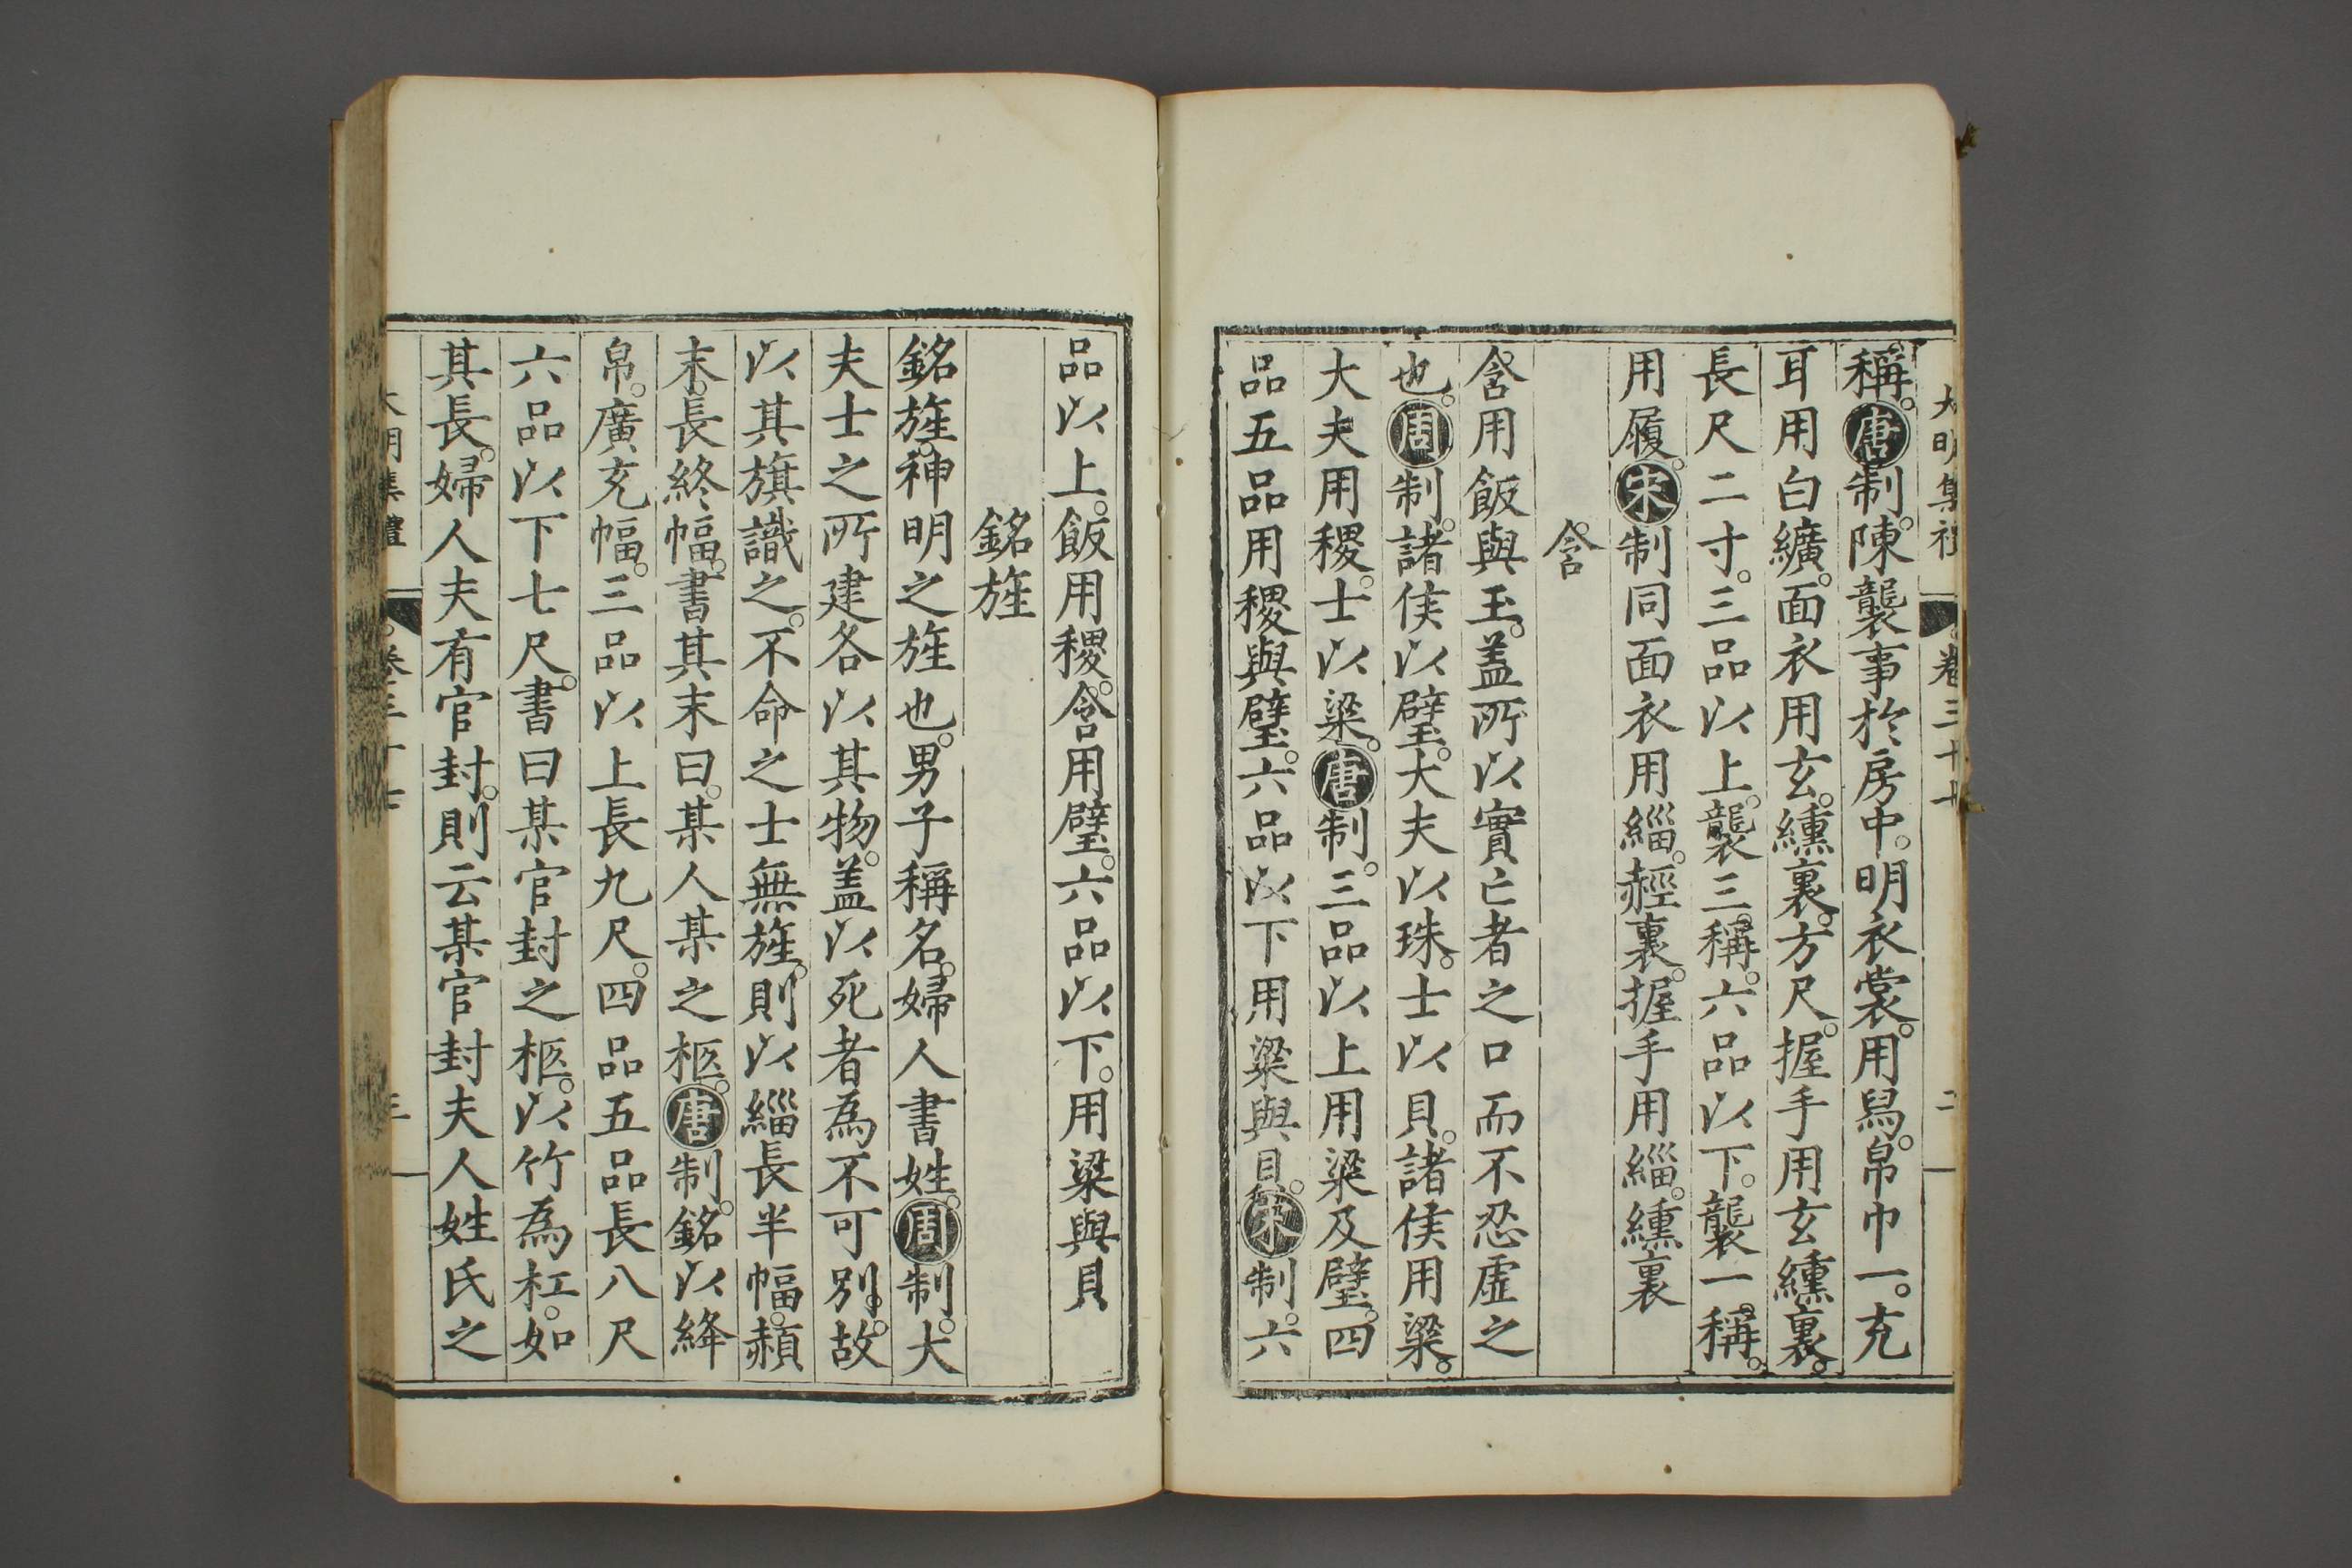 大明集禮 卷三十七 二
稱。唐制。陳襲事於房中。明衣裳。用舄。帛巾一。充
耳用白纊。面衣用玄。纁裏。方尺。握手用玄纁裏。
長尺二寸。三品以上。襲三。稱。六品以下。襲一。稱。
用履。宋制同面衣用緇。赬裏。握手用緇。纁裏
含
含用飯與玉。盖所以實亡者之口而不忍虛之
也。周制。諸侯以璧。大夫以珠。士以貝。諸侯用粱。
大夫用稷。士以粱。唐制。三品以上用粱及璧。四
品五品用稷與璧。六品以下用粱與貝。宋制。六
品以上。飯用稷。含用璧。六品以下。用粱與貝
銘旌
銘旌。神明之旌也。男子稱名。婦人書姓。周制。大
夫士之所建各以其物。盖以死者為不可別。故
以其旗識之。不命之士無旌。則以緇長半幅。赬
末。長終幅。書其末曰。某人某之柩。唐制。銘以絳
帛。廣充幅。三品以上長九尺。四品五品長八尺
六品以下七尺。書曰某官封之柩。以竹為杠。如
其長。婦人夫有官封。則云某官封夫人姓氏之
大明集禮 卷三十七 三